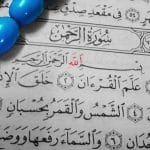 فِي مَقْعَدِ صِدْقٍ
سُورَةُ الرَّحْمٰنِ
بِسْمِ اللَّهِ الرَّحْمٰنِ الرَّحِيمِ
عَلَّمَ الْقُرْءَانَ ٢ خَلَقَ الْإِ
الشَّمْسُ وَالْقَمَرُ بِحُسْبَانٍ
وَالسَّمَاءَ رَفَعَهَا وَوَضَ